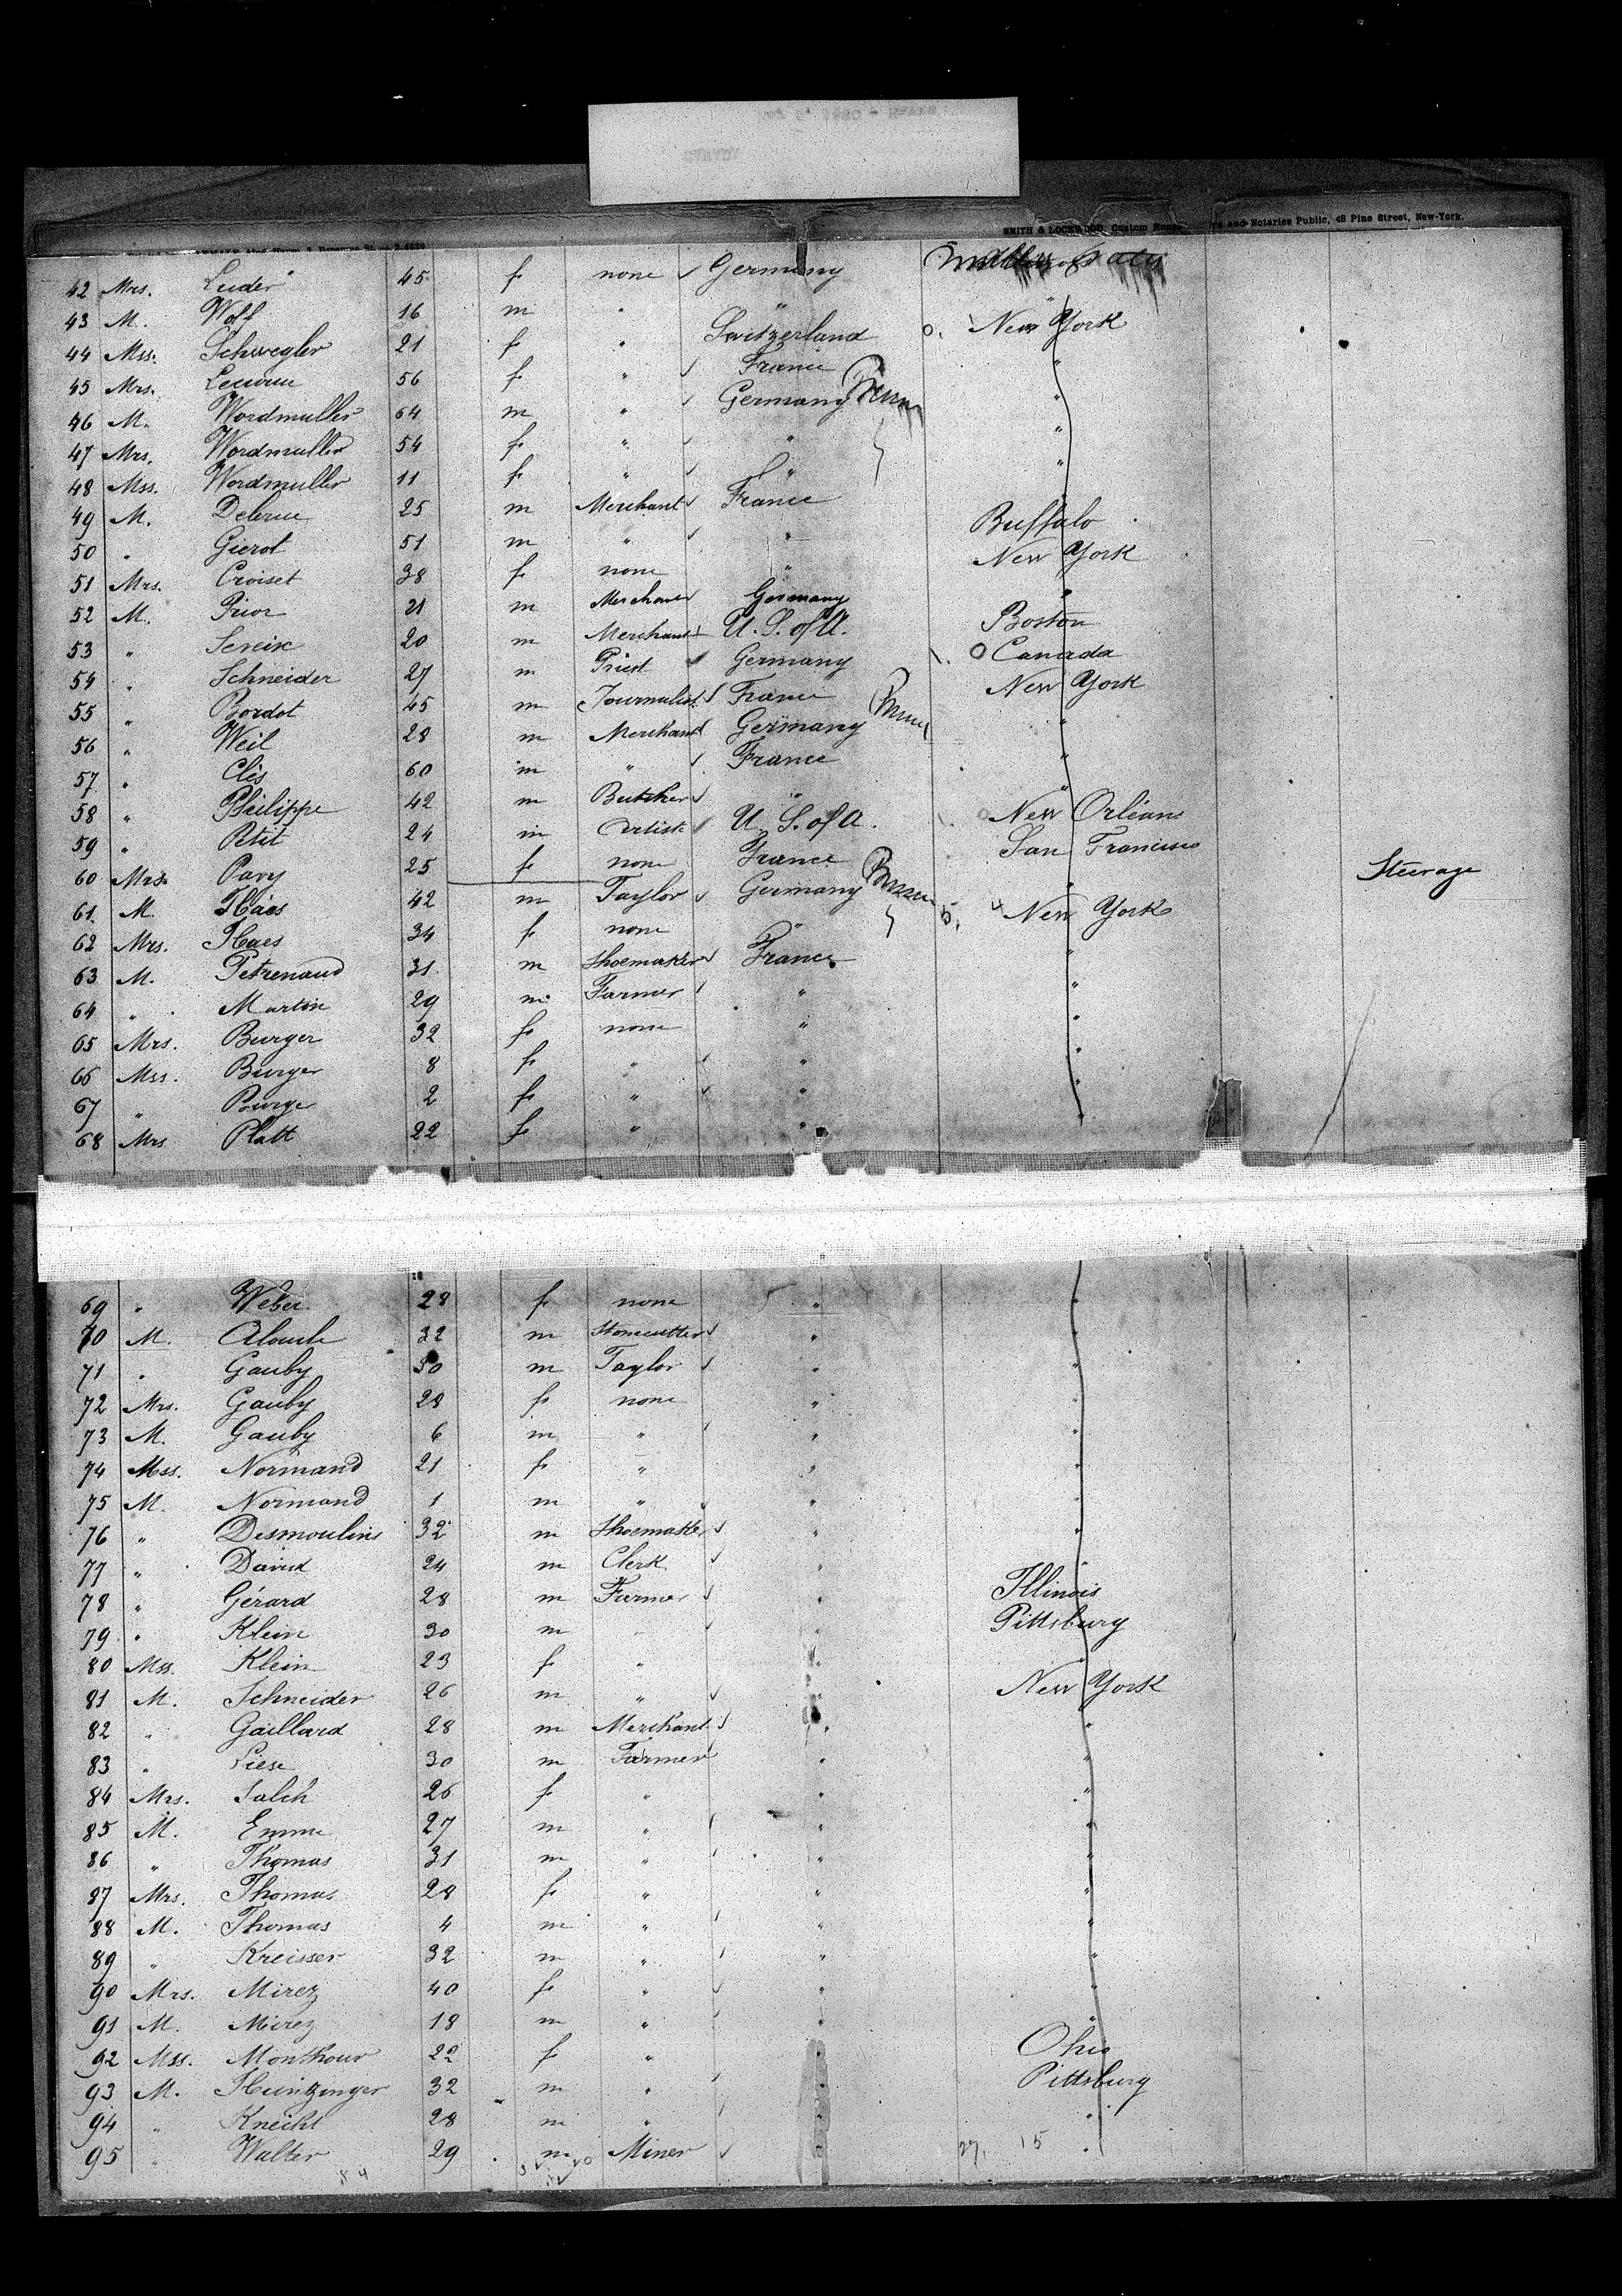 SMITH & LOCKWOOD, Custom House and Notaries Public, 48 Pine Street, New-York.
42 Mrs. Luder 45 f none Germany
43 M. Wolf 16 m " "
44 Mss. Schwegler 21 f " Switzerland New York
45 Mrs. 56 f " France "
46 M. Wordmuller 64 m " Germany "
47 Mrs. Wordmuller 54 f " " "
48 Mss. Wordmuller 11 f " " "
49 M. Delorue 25 m Merchant France "
50 " Gierot 51 m " " Buffalo
51 Mrs. Croiset 38 f none " New York
52 M. Prior 21 m Merchant Germany "
53 " 20 m Merchant U. S. of A. Boston
54 " Schneider 27 m Priest Germany Canada
55 " Bordot 45 m Journalist France New York
56 " Weil 28 m Merchant Germany "
57 " Clés 60 m " France "
58 " Philippe 42 m Butcher " "
59 " Petit 24 m Artist U. S. of A. New Orléans
60 Mrs. Pavy 25 f none France San Francisco
61. M. Haes 42 m Taylor Germany " Steerage
62 Mrs. Haes 34 f none " New York
63 M. Petrenaud 31 m Shoemaker France "
64 " Martin 29 m Farmer " "
65 Mrs. Burger 32 f none " "
66 Mss. Burger 8 f " " "
67 " Burger 2 f " " "
68 Mrs Platt 22 f " " "
69 " Weber 28 f none " "
70 M. 32 m Stonecutter " "
71 " Gauby 30 m Taylor " "
72 Mrs. Gauby 28 f none " "
73 M. Gauby 6 m " " "
74 Mss. Normand 21 f " " "
75 M. Normand 1 m " " "
76 " Desmoulins 32 m Shoemaker " "
77 " David 24 m Clerk " "
78 " Gérard 28 m Farmer " Illinois
79 " Klein 30 m " " Pittsburg
80 Mss. Klein 23 f " " "
81 M. Schneider 26 m " " New York
82 " Gaillard 28 m Merchant " "
83 " Liese 30 m Farmer " "
84 Mrs. Salch 26 f " " "
85 M. Emme 27 m " " "
86 " Thomas 31 m " " "
87 Mrs. Thomas 28 f " " "
88 M. Thomas 4 m " " "
89 " Kreisser 32 m " " "
90 Mrs. Mirez 40 f " " "
91 M. Mirez 18 m " " "
92 Mss. Monthour 22 f " " Ohio
93 M. Heintzinger 32 m " " Pittsburg
94 " Knecht 28 m " " "
95 " Walter 29 m Miner " "
27. 15